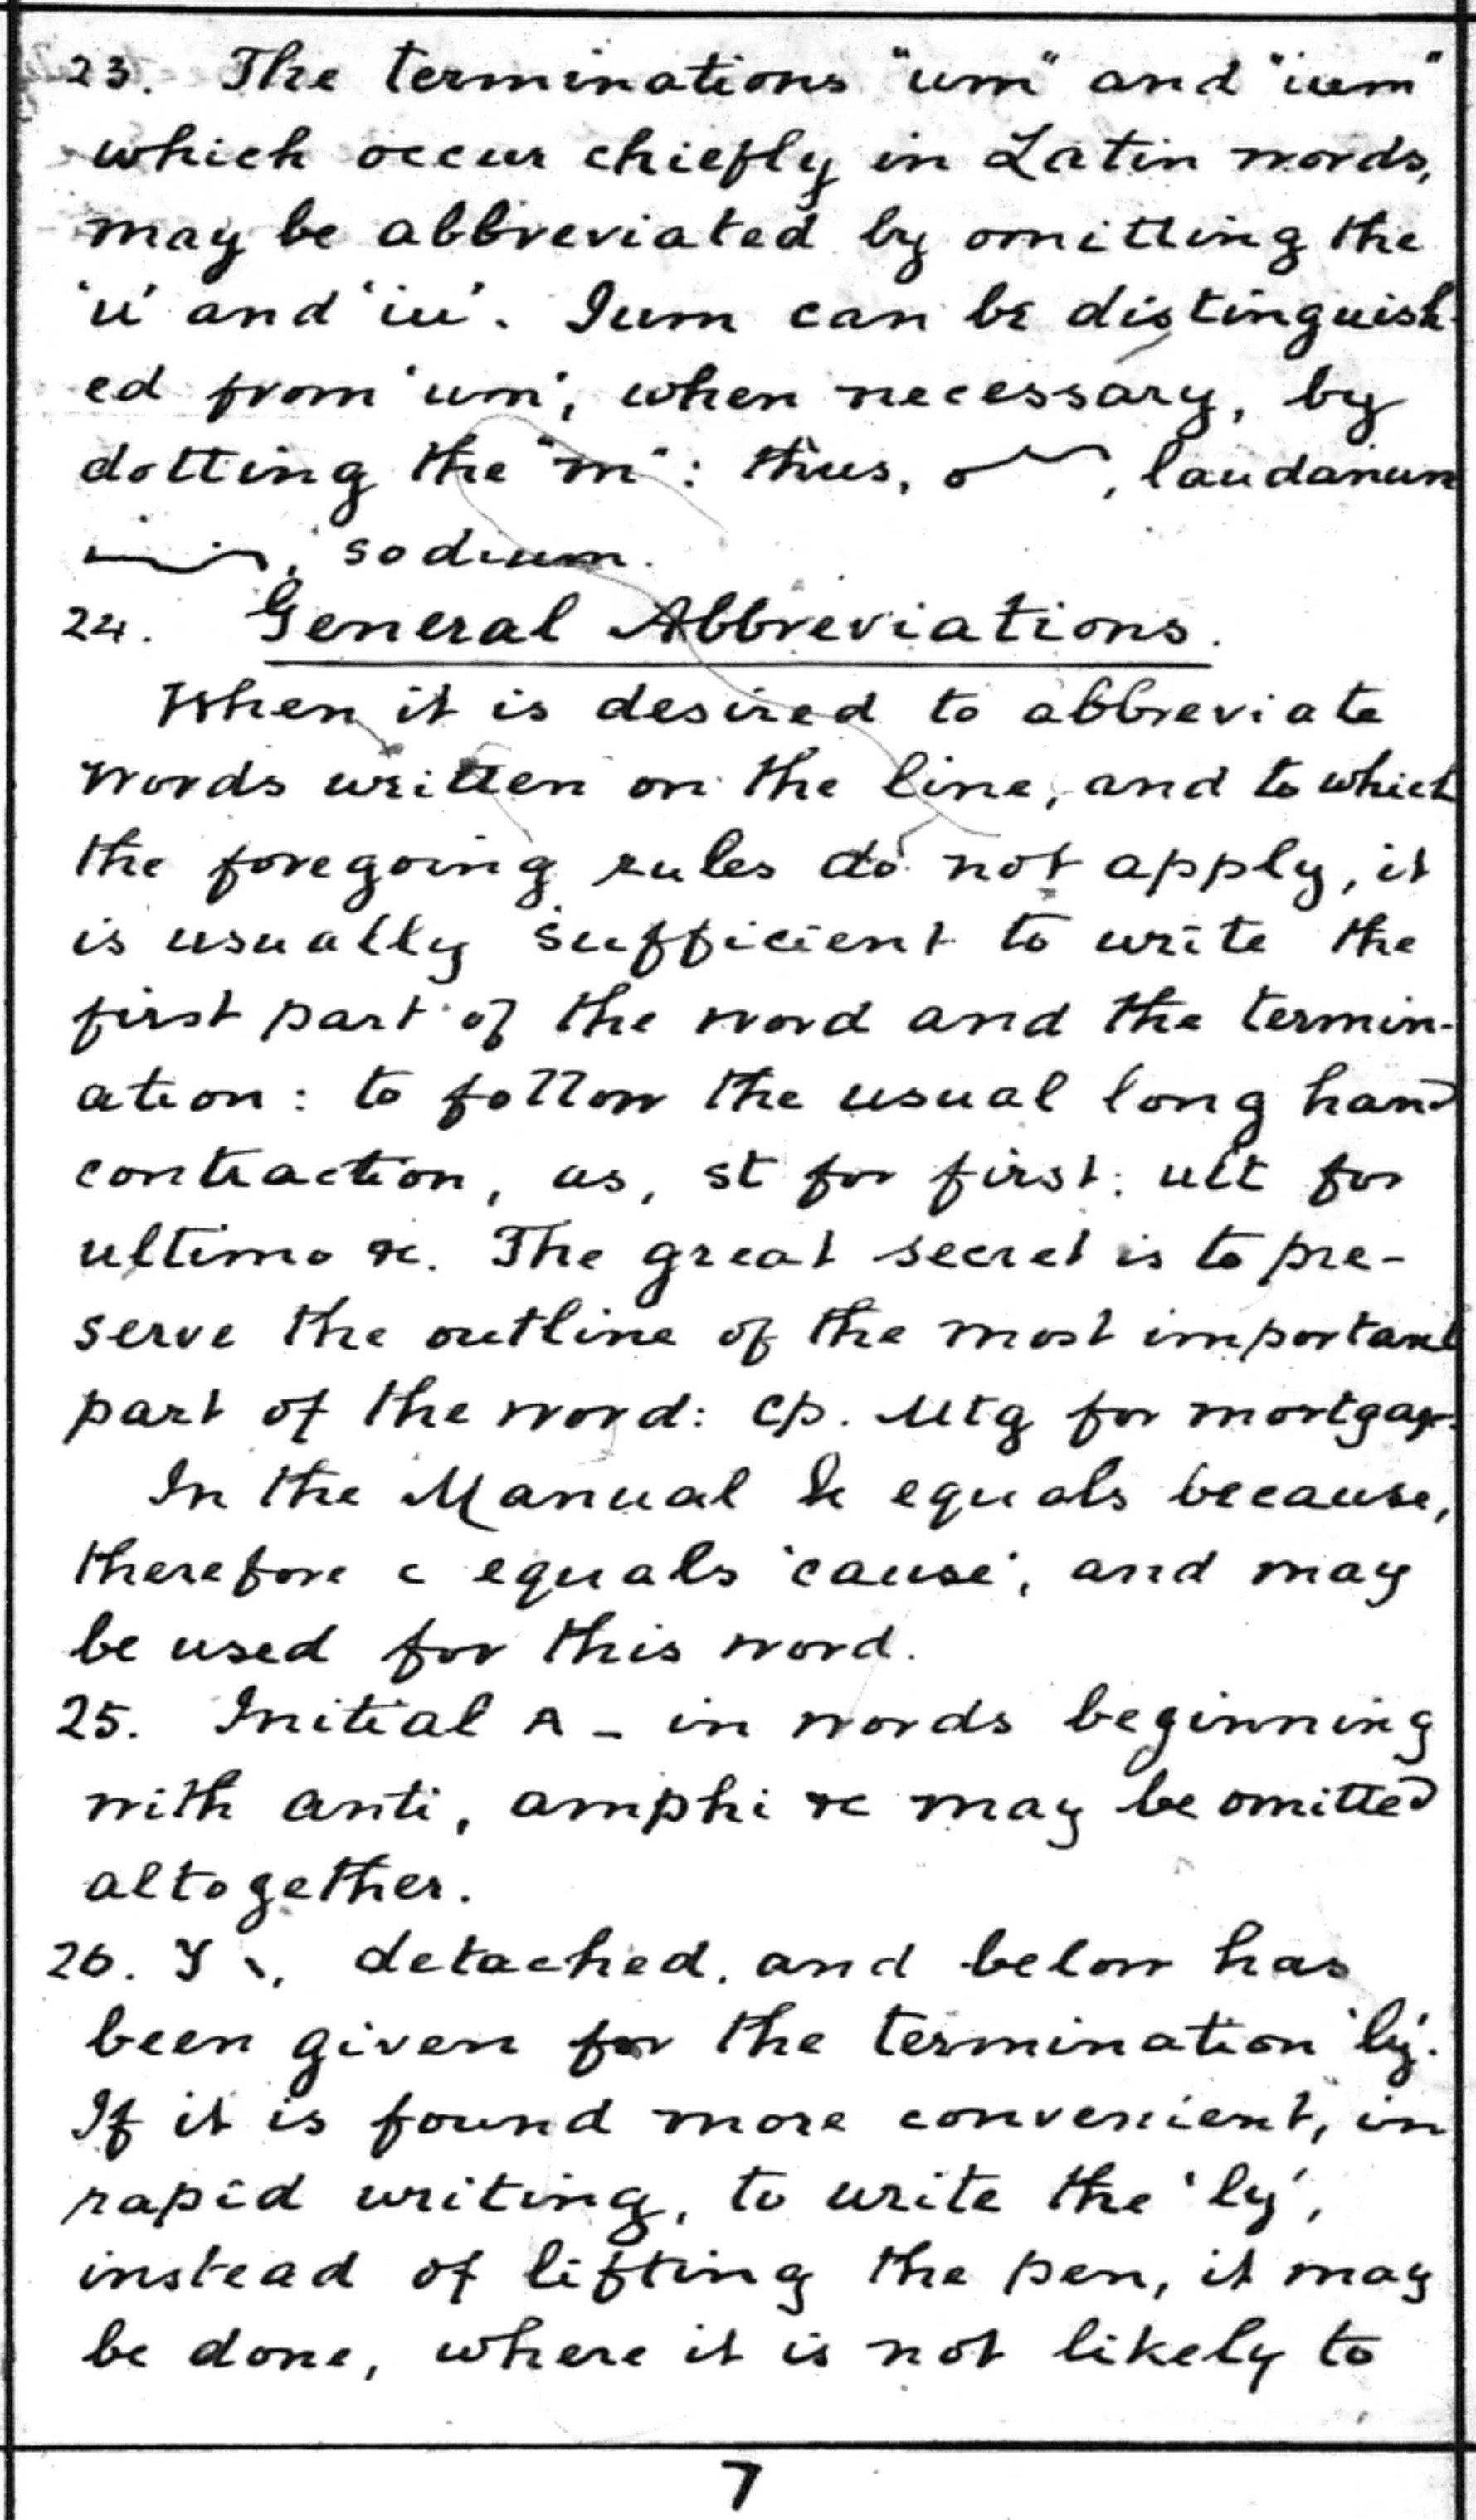 23. The terminations "um" and "ium"
which occur chiefly in Latin words,
may be abbreviated by omitting the
'u' and 'iu'. Ium can be distinguish-
ed from 'um', when necessary, by
dotting the "m": thus, , laudanum
, sodium.
24. General Abbreviations.
When it is desired to abbreviate
words written on the line, and to which
the foregoing rules do not apply, it
is usually sufficient to write the
first part of the word and the termin-
ation: to follow the usual long hand
contraction, as, st for first: ult for
ultimo &c. The great secret is to pre-
serve the outline of the most important
part of the word: cp. Mtg for mortgage.
In the Manual bc equals because,
therefore c equals 'cause', and may
be used for this word.
25. Initial A - in words beginning
with anti, amphi &c may be omitted
altogether.
26. Y \, detached, and below has
been given for the termination 'ly'.
If it is found more convenient, in
rapid writing, to write the 'ly',
instead of lifting the pen, it may
be done, where it is not likely to
7